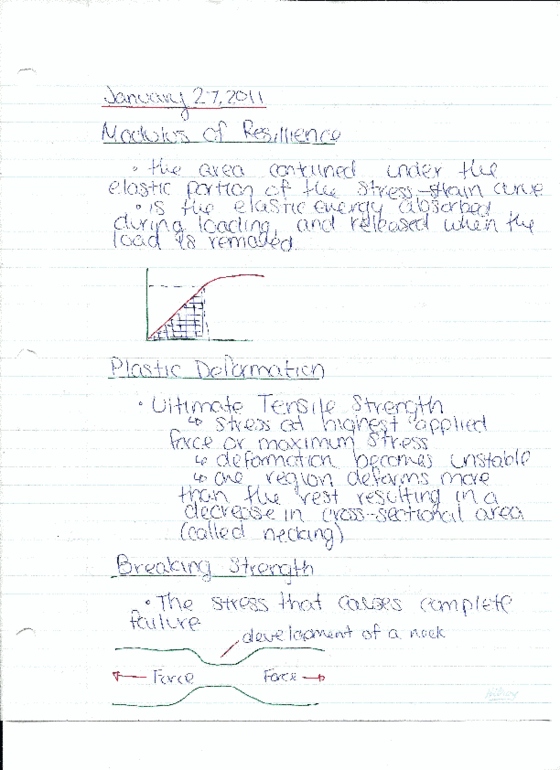 January 27, 2011
Modulus of Resillience
• the area contained under the
elastic portion of the stress-strain curve
• is the elastic energy absorbed
during loading, and released when the
load is removed.
Plastic Deformation
• Ultimate Tensile Strength
↳ stress at highest applied
force or maximum stress
↳ deformation becomes unstable
↳ one region deforms more
than the rest resulting in a
decrease in cross-sectional area
(called necking)
Breaking Strength
• The stress that causes complete
failure
development of a neck
← Force Force →